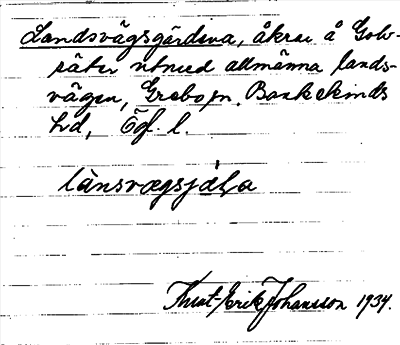 Landsvägsgärdena, åkrar å Golv-
säter utmed allmänna lands-
vägen, Grebo sn. Bankekinds
hd, Ögl. l.
lànsvægsjæḷa
Knut-Erik Johansson 1934.